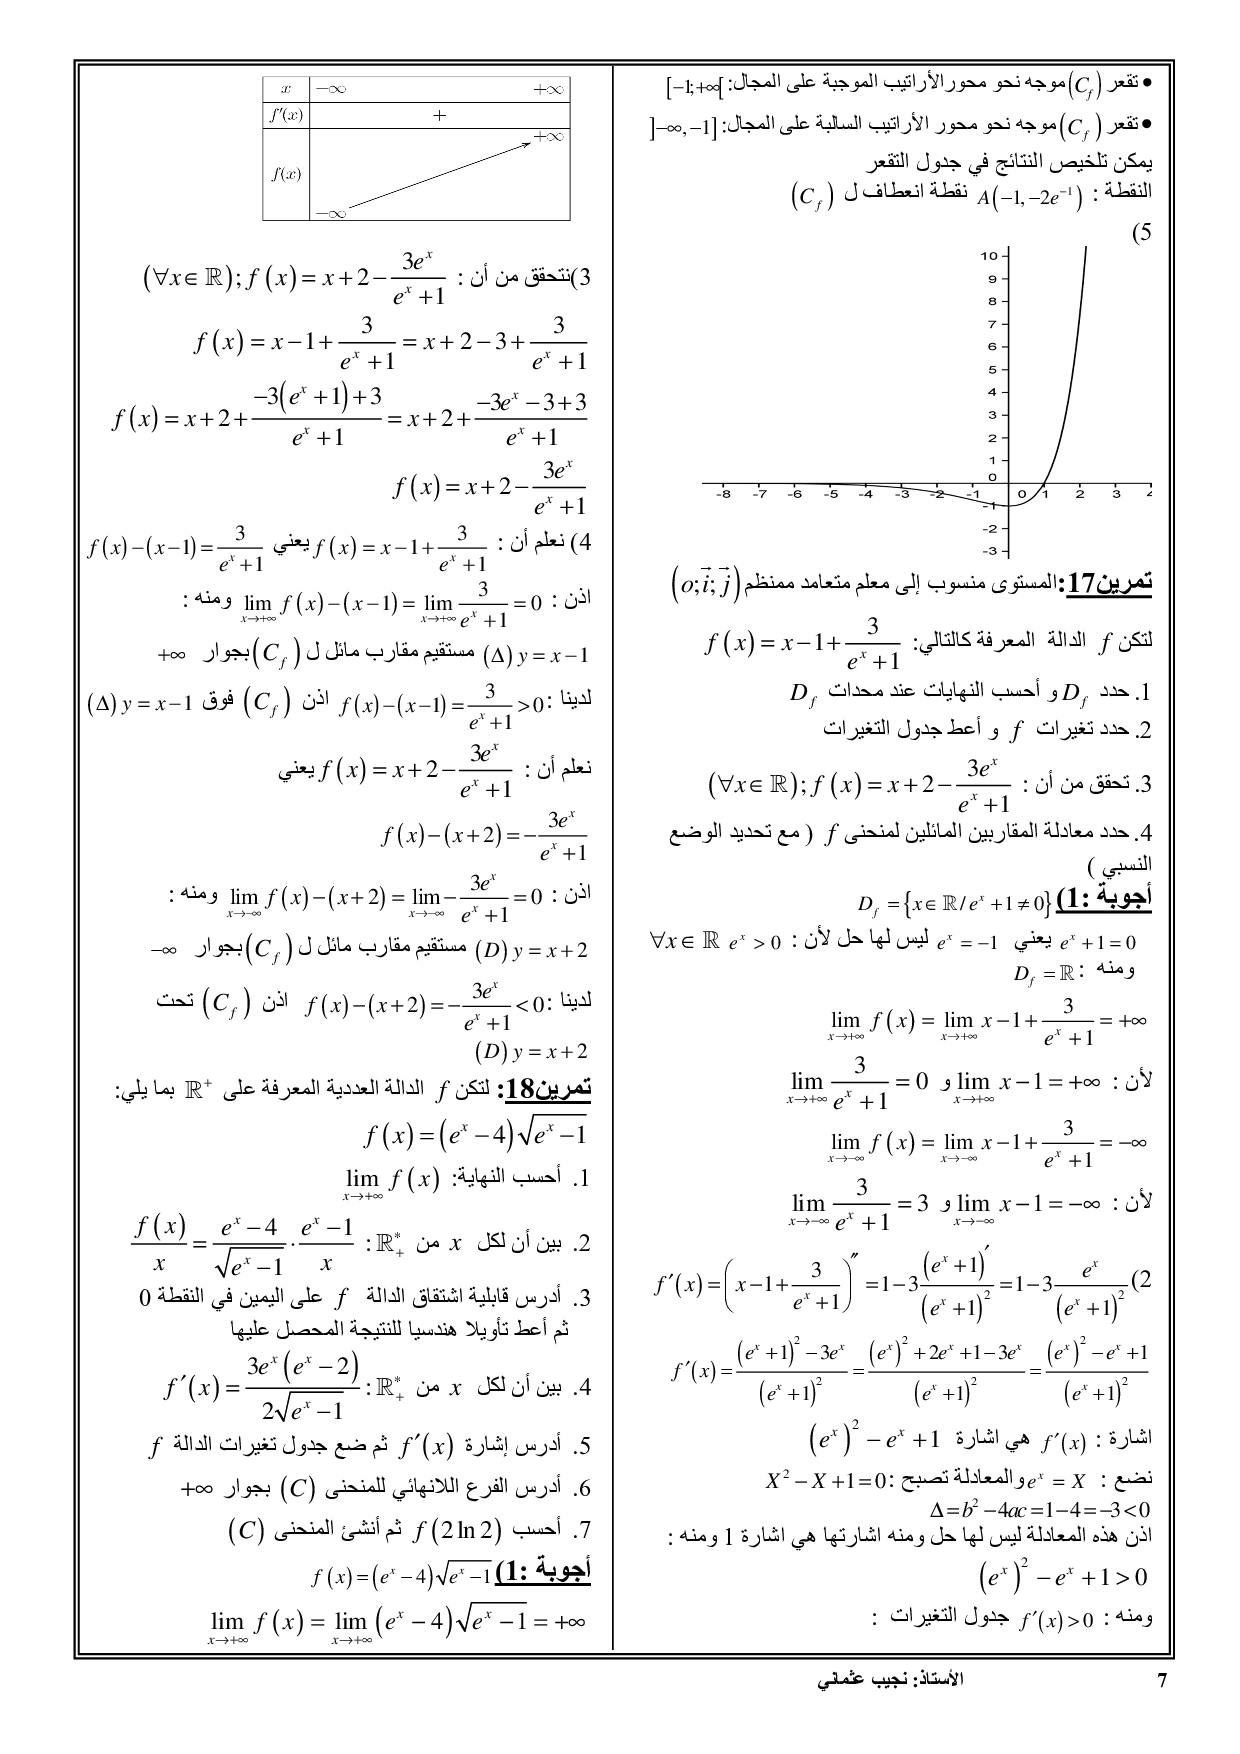 • تقعر (C_f) موجه نحو محور الأراتيب الموجبة على المجال: [−1;+∞[
• تقعر (C_f) موجه نحو محور الأراتيب السالبة على المجال: ]−∞,−1]
يمكن تلخيص النتائج في جدول التقعر
النقطة : A(−1,−2e^{−1}) نقطة انعطاف ل (C_f)
5)
10
9
8
7
6
5
4
3
2
1
0
-8 -7 -6 -5 -4 -3 -2 -1 0 1 2 3
-1
-2
-3
تمرين17: المستوى منسوب إلى معلم متعامد ممنظم (o;i⃗;j⃗)
لتكن f الدالة المعرفة كالتالي: f(x) = x−1+3/(e^x+1)
1. حدد D_f و أحسب النهايات عند محدات D_f
2. حدد تغيرات f و أعط جدول التغيرات
3. تحقق من أن : (∀x∈ℝ); f(x) = x+2−3e^x/(e^x+1)
4. حدد معادلة المقاربين المائلين لمنحنى f ( مع تحديد الوضع
النسبي )
أجوبة :1) D_f = {x∈ℝ/e^x+1≠0}
e^x+1=0 يعني e^x=−1 ليس لها حل لأن : e^x>0 ∀x∈ℝ
ومنه : D_f = ℝ
lim_{x→+∞} f(x) = lim_{x→+∞} x−1+3/(e^x+1) = +∞
لأن : lim_{x→+∞} x−1 = +∞ و lim_{x→+∞} 3/(e^x+1) = 0
lim_{x→−∞} f(x) = lim_{x→−∞} x−1+3/(e^x+1) = −∞
لأن : lim_{x→−∞} x−1 = −∞ و lim_{x→−∞} 3/(e^x+1) = 3
2) f′(x) = (x−1+3/(e^x+1))″ = 1−3(e^x+1)′/(e^x+1)^2 = 1−3e^x/(e^x+1)^2
f′(x) = ((e^x+1)^2−3e^x)/(e^x+1)^2 = ((e^x)^2+2e^x+1−3e^x)/(e^x+1)^2 = ((e^x)^2−e^x+1)/(e^x+1)^2
اشارة : f′(x) هي اشارة (e^x)^2−e^x+1
نضع : e^x = X والمعادلة تصبح : X^2−X+1=0
Δ=b^2−4ac=1−4=−3<0
اذن هذه المعادلة ليس لها حل ومنه اشارتها هي اشارة 1 ومنه :
(e^x)^2−e^x+1>0
ومنه : f′(x)>0 جدول التغيرات :
x −∞ +∞
f′(x) +
f(x) −∞ +∞
3)نتحقق من أن : (∀x∈ℝ); f(x) = x+2−3e^x/(e^x+1)
f(x) = x−1+3/(e^x+1) = x+2−3+3/(e^x+1)
f(x) = x+2+(−3(e^x+1)+3)/(e^x+1) = x+2+(−3e^x−3+3)/(e^x+1)
f(x) = x+2−3e^x/(e^x+1)
4) نعلم أن : f(x) = x−1+3/(e^x+1) يعني f(x)−(x−1) = 3/(e^x+1)
اذن : lim_{x→+∞} f(x)−(x−1) = lim_{x→+∞} 3/(e^x+1) = 0 ومنه :
(Δ) y = x−1 مستقيم مقارب مائل ل (C_f) بجوار +∞
لدينا : f(x)−(x−1) = 3/(e^x+1) > 0 اذن (C_f) فوق (Δ) y = x−1
نعلم أن : f(x) = x+2−3e^x/(e^x+1) يعني
f(x)−(x+2) = −3e^x/(e^x+1)
اذن : lim_{x→−∞} f(x)−(x+2) = lim_{x→−∞} −3e^x/(e^x+1) = 0 ومنه :
(D) y = x+2 مستقيم مقارب مائل ل (C_f) بجوار −∞
لدينا : f(x)−(x+2) = −3e^x/(e^x+1) < 0 اذن (C_f) تحت
(D) y = x+2
تمرين18: لتكن f الدالة العددية المعرفة على ℝ^+ بما يلي:
f(x) = (e^x−4)√(e^x−1)
1. أحسب النهاية: lim_{x→+∞} f(x)
2. بين أن لكل x من ℝ_+^* : f(x)/x = (e^x−4)/√(e^x−1) · (e^x−1)/x
3. أدرس قابلية اشتقاق الدالة f على اليمين في النقطة 0
ثم أعط تأويلا هندسيا للنتيجة المحصل عليها
4. بين أن لكل x من ℝ_+^* : f′(x) = 3e^x(e^x−2)/(2√(e^x−1))
5. أدرس إشارة f′(x) ثم ضع جدول تغيرات الدالة f
6. أدرس الفرع اللانهائي للمنحنى (C) بجوار +∞
7. أحسب f(2ln2) ثم أنشئ المنحنى (C)
أجوبة :1) f(x) = (e^x−4)√(e^x−1)
lim_{x→+∞} f(x) = lim_{x→+∞} (e^x−4)√(e^x−1) = +∞
الأستاذ: نجيب عثماني
7